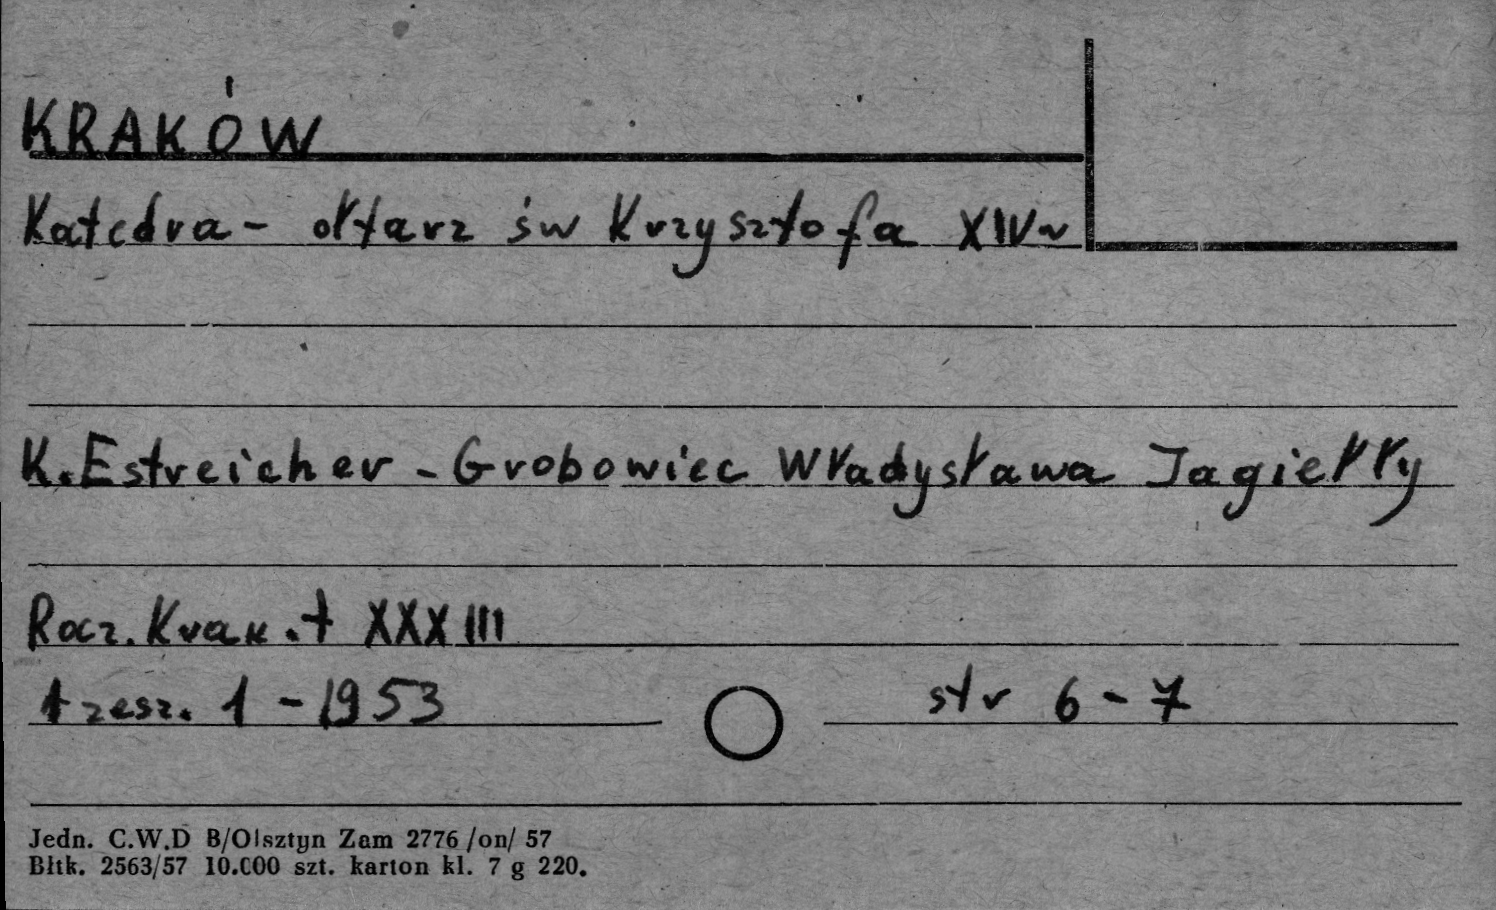 KRAKÓW
Katedra - ołtarz św Krzysztofa XIVw
K. Estreicher - Grobowiec Władysława Jagiełły
Rocz. Krak. t XXXIII
zesz. 1 - 1953
str 6 - 7
Jedn. C.W.D B/Olsztyn Zam 2776 /on/ 57
Bltk. 2563/57 10.000 szt. karton kl. 7 g 220.